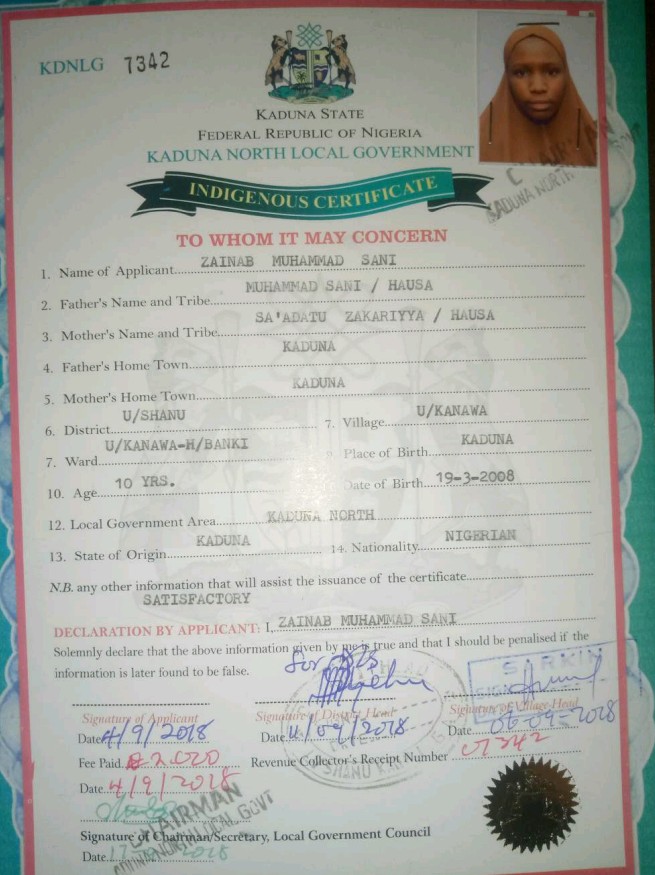 KDNLG 7342
KADUNA STATE
FEDERAL REPUBLIC OF NIGERIA
KADUNA NORTH LOCAL GOVERNMENT
INDIGENOUS CERTIFICATE
TO WHOM IT MAY CONCERN
1. Name of Applicant ZAINAB MUHAMMAD SANI
2. Father's Name and Tribe MUHAMMAD SANI / HAUSA
3. Mother's Name and Tribe SA'ADATU ZAKARIYYA / HAUSA
4. Father's Home Town KADUNA
5. Mother's Home Town KADUNA
6. District U/SHANU 7. Village U/KANAWA
7. Ward U/KANAWA-H/BANKI Place of Birth KADUNA
10. Age 10 YRS. Date of Birth 19-3-2008
12. Local Government Area KADUNA NORTH
13. State of Origin KADUNA 14. Nationality NIGERIAN
N.B. any other information that will assist the issuance of the certificate
SATISFACTORY
DECLARATION BY APPLICANT: I, ZAINAB MUHAMMAD SANI
Solemnly declare that the above information given by me is true and that I should be penalised if the
information is later found to be false.
Signature of Applicant Signature of District Head Signature of Village Head
Date 4/9/2018 Date 4/09/2018 Date 06-09-2018
Fee Paid 2,020 Revenue Collector's Receipt Number 07342
Date 4/9/2018
CHAIRMAN
Signature of Chairman/Secretary, Local Government Council
Date